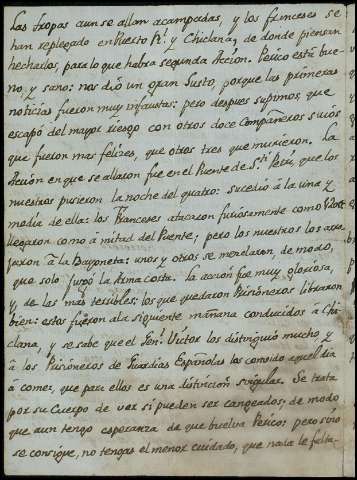 Las tropas aun se allan acampadas, y los franceses se
han replegado en Puerto Rl. y Chiclana, de donde piensan
hecharlos, para lo que habra segunda Acción. Perico está bue-
no, y sano: nos dió un gran susto, porque las primeras
noticias fueron muy infaustas: pero despues supimos, que
escapó del mayor riesgo con otros doce Compañeros suios
que fueron mas felizes, que otros tres que murieron. La
Acción en que se allaron fue en el Puente de Sti. Petri, que los
nuestros pusieron la noche del quatro: sucedió á la una y
media de ella: los Franceses atacaron furiosamente como
llegaron como á mitad del Puente; pero los nuestros los
á la Bayoneta: unos y otros se mezclaron, de modo,
que solo jugó la Arma corta. la acción fue muy gloriosa,
y de las más terribles: los que quedaron Prisioneros libraron
bien: estos fueron ala siguiente mañana conducidos á Chi-
clana, y se sabe que el Gen. Victor los distinguió mucho y
á los Prisioneros de Guardias Españolas los convidó aquel dia
á comer, que para ellos es una distinción singular. Se trata
por su Cuerpo de ver si pueden ser cangeados; de modo
que aun tengo esperanza de que buelva Perico; pero sino
se consigue, no tengas el menor cuidado, que nada le falta-